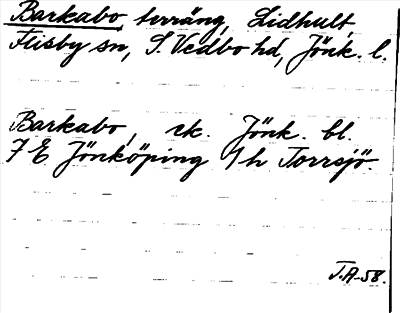 Barkabo, terräng, Lidhult,
Flisby sn, S. Vedbo hd, Jönk. l.
Barkabo, ek. Jönk. bl.
7 E Jönköping 1 h Torrsjö.
J.A-58.